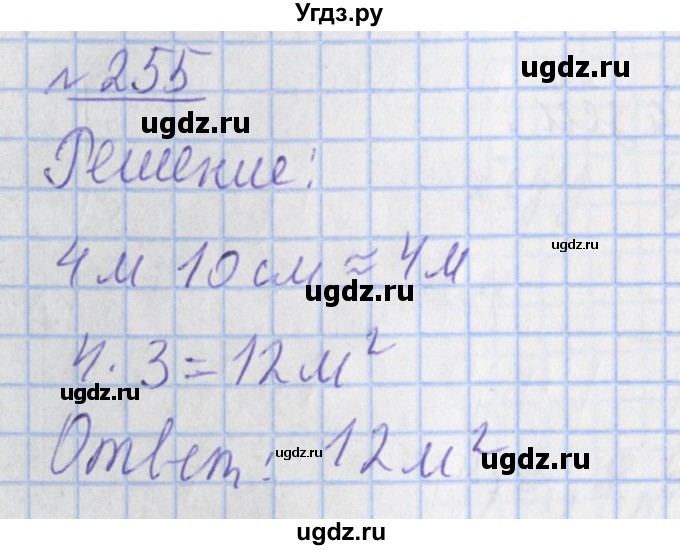 Угдз.ру
№ 255
ugdz.ru
ugdz.ru
Решение:
ugdz.ru
4 м 10 см ≈ 4 м
ugdz.ru
4 · 3 = 12 м²
ugdz.ru
Ответ: 12 м²
ugdz.ru
ugdz.ru
ugdz.ru